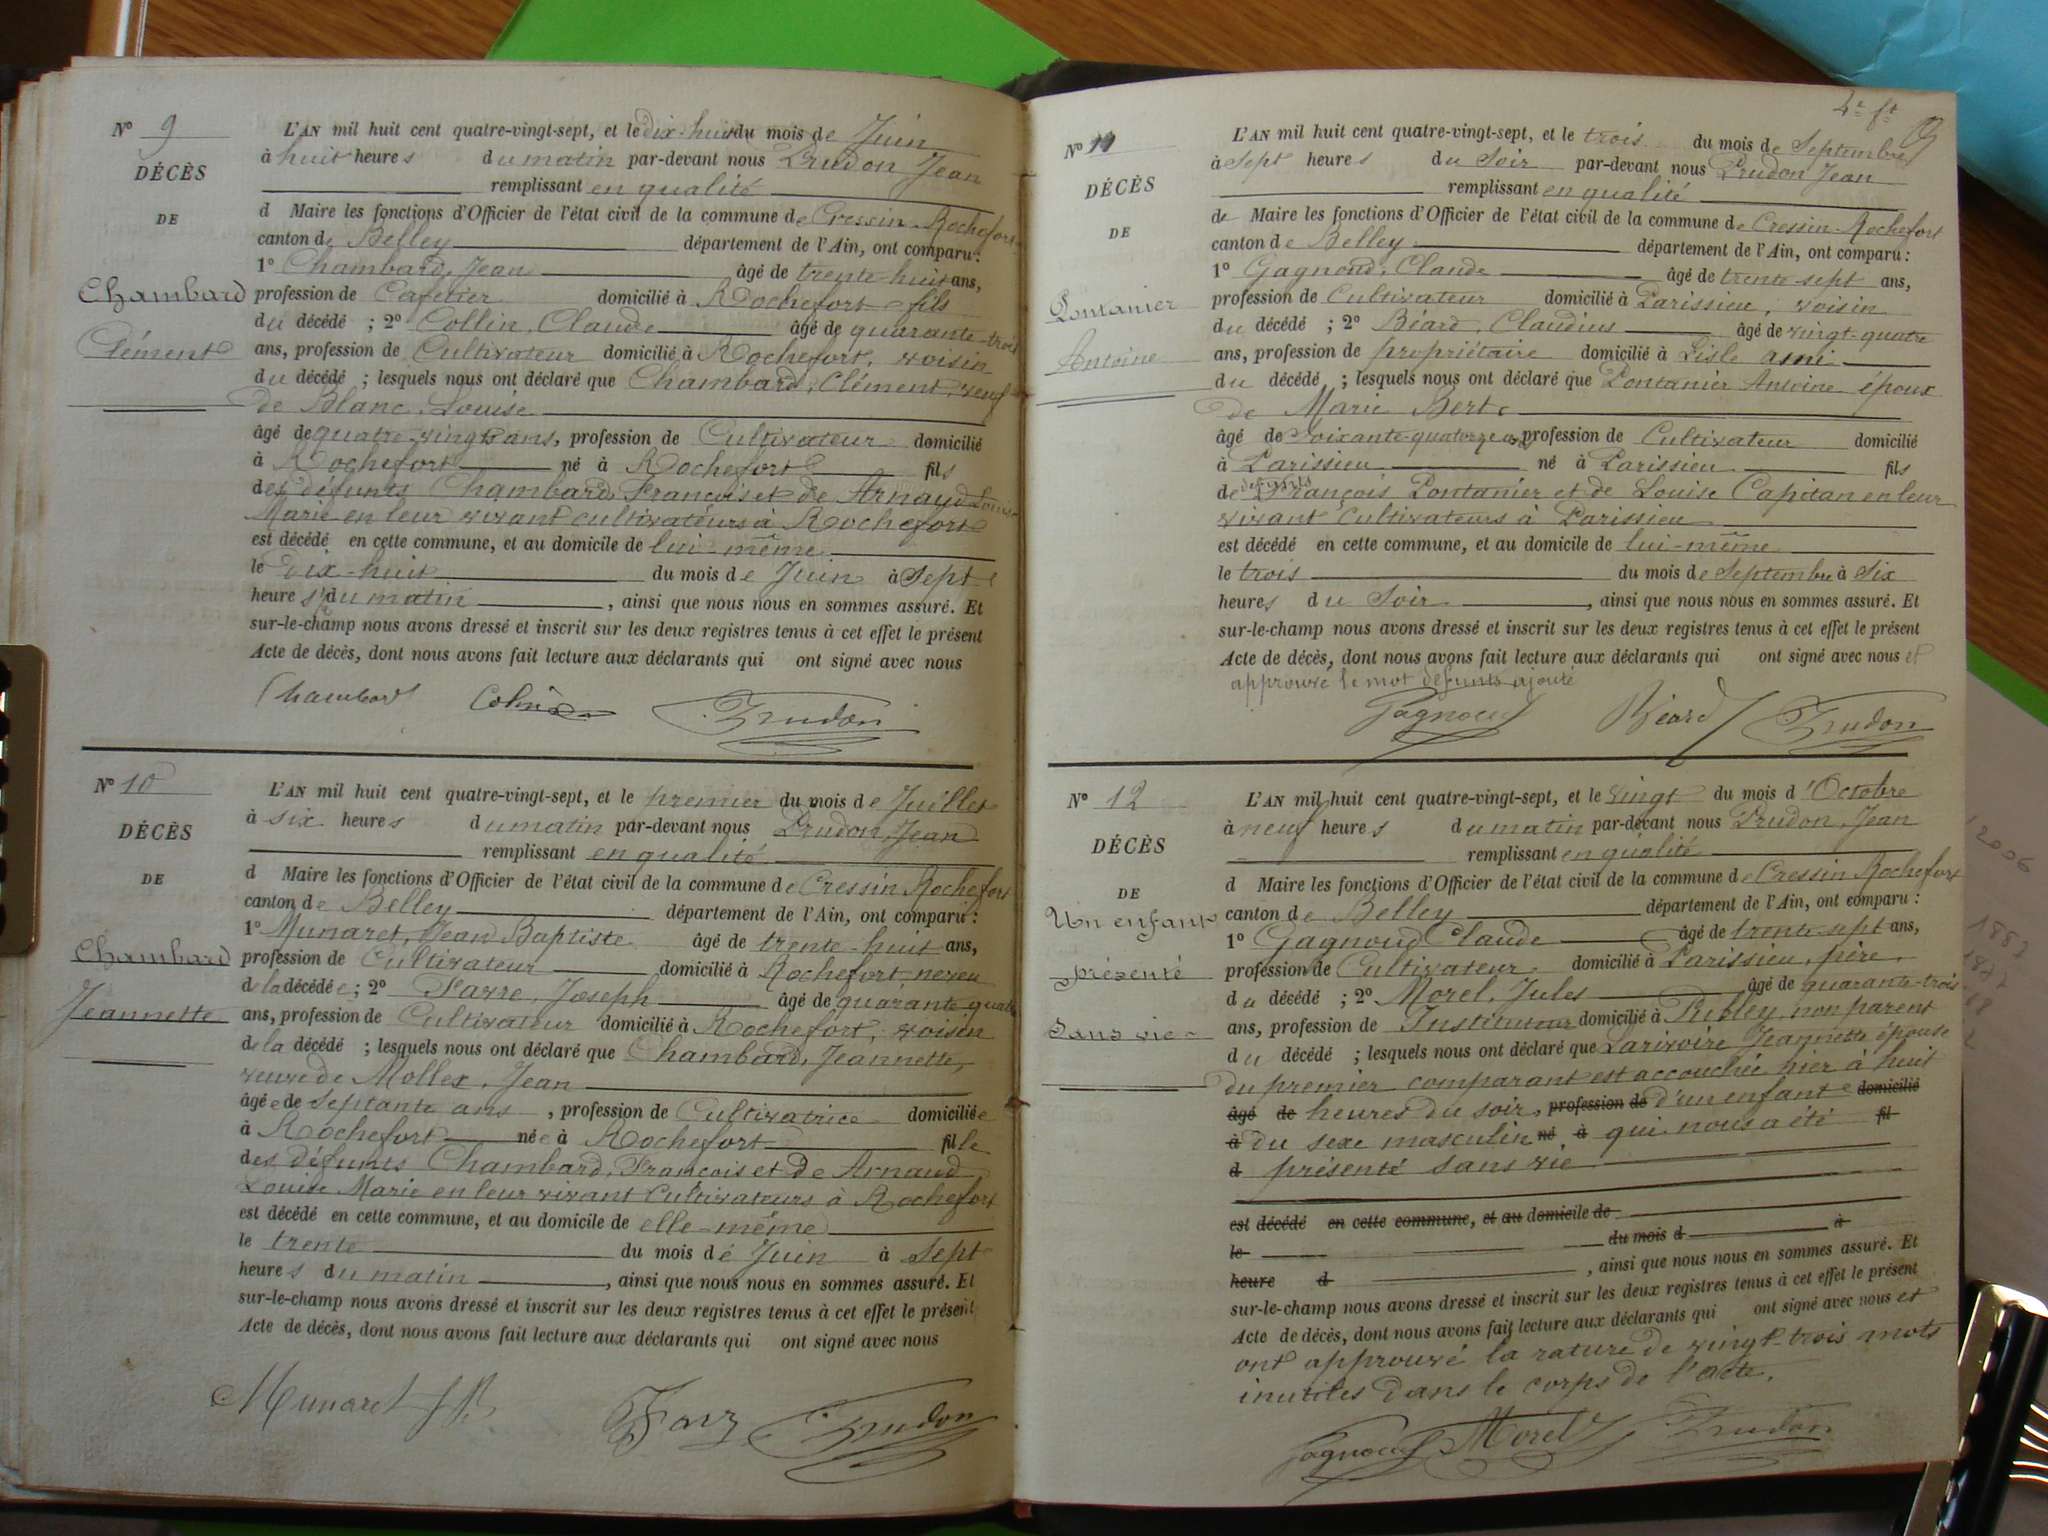 N° 9
DÉCÈS
DE
Chambard
Clément
L'AN mil huit cent quatre-vingt-sept, et le dix-huit du mois de Juin
à huit heures du matin par-devant nous Prudon Jean
remplissant en qualité
d Maire les fonctions d'Officier de l'état civil de la commune de Cressin-Rochefort
canton de Belley département de l'Ain, ont comparu :
1° Chambard, Jean âgé de trente-huit ans,
profession de Cafetier domicilié à Rochefort fils
du décédé ; 2° Collin, Claude âgé de quarante-trois
ans, profession de Cultivateur domicilié à Rochefort, voisin
du décédé ; lesquels nous ont déclaré que Chambard, Clément, veuf
de Blanc, Louise
âgé de quatre-vingts ans, profession de Cultivateur domicilié
à Rochefort né à Rochefort fils
des défunts Chambard, François et de Arnaud Louise
Marie en leur vivant cultivateurs à Rochefort
est décédé en cette commune, et au domicile de lui-même
le dix-huit du mois de Juin à Sept
heures du matin, ainsi que nous nous en sommes assuré. Et
sur-le-champ nous avons dressé et inscrit sur les deux registres tenus à cet effet le présent
Acte de décès, dont nous avons fait lecture aux déclarants qui ont signé avec nous
Chambard Colin Prudon
N° 10
DÉCÈS
DE
Chambard
Jeannette
L'AN mil huit cent quatre-vingt-sept, et le premier du mois de Juillet
à six heures du matin par-devant nous Prudon, Jean
remplissant en qualité
d Maire les fonctions d'Officier de l'état civil de la commune de Cressin Rochefort
canton de Belley département de l'Ain, ont comparu :
1° Munaret, Jean Baptiste âgé de trente-huit ans,
profession de Cultivateur domicilié à Rochefort, neveu
de la décédée ; 2° Favre, Joseph âgé de quarante-quatre
ans, profession de Cultivateur domicilié à Rochefort, voisin
de la décédé ; lesquels nous ont déclaré que Chambard, Jeannette,
veuve de Mollex, Jean
âgée de Septante ans, profession de Cultivatrice domiciliée
à Rochefort née à Rochefort fille
des défunts Chambard, François et de Arnaud,
Louise Marie en leur vivant Cultivateurs à Rochefort
est décédé en cette commune, et au domicile de elle-même
le trente du mois de Juin à Sept
heures du matin, ainsi que nous nous en sommes assuré. Et
sur-le-champ nous avons dressé et inscrit sur les deux registres tenus à cet effet le présent
Acte de décès, dont nous avons fait lecture aux déclarants qui ont signé avec nous
Munaret JB Prudon
N° 11
DÉCÈS
DE
Pontanier
Antoine
L'AN mil huit cent quatre-vingt-sept, et le trois du mois de Septembre
à sept heures du Soir par-devant nous Prudon Jean
remplissant en qualité
de Maire les fonctions d'Officier de l'état civil de la commune de Cressin-Rochefort
canton de Belley département de l'Ain, ont comparu :
1° Gagnoud, Claude âgé de trente-sept ans,
profession de Cultivateur domicilié à Parissieu, voisin
du décédé ; 2° Béard, Claudius âgé de vingt-quatre
ans, profession de propriétaire domicilié à Lisle ami
du décédé ; lesquels nous ont déclaré que Pontanier Antoine époux
de Marie Bert
âgé de Soixante-quatorze ans, profession de Cultivateur domicilié
à Parissieu né à Parissieu fils
de défunts François Pontanier et de Louise Capitan en leur
vivant Cultivateurs à Parissieu
est décédé en cette commune, et au domicile de lui-même
le trois du mois de Septembre à Six
heures du Soir, ainsi que nous nous en sommes assuré. Et
sur-le-champ nous avons dressé et inscrit sur les deux registres tenus à cet effet le présent
Acte de décès, dont nous avons fait lecture aux déclarants qui ont signé avec nous et
approuvé le mot défunts ajouté
Gagnoud Béard Prudon
N° 12
DÉCÈS
DE
Un enfant
présenté
Sans vie
L'AN mil huit cent quatre-vingt-sept, et le vingt du mois d'Octobre
à neuf heures du matin par-devant nous Prudon, Jean
remplissant en qualité
d Maire les fonctions d'Officier de l'état civil de la commune de Cressin Rochefort
canton de Belley département de l'Ain, ont comparu :
1° Gagnoud Claude âgé de trente-sept ans,
profession de Cultivateur domicilié à Parissieu, père,
du décédé ; 2° Morel, Jules âgé de quarante-trois
ans, profession de Instituteur domicilié à non parent
du décédé ; lesquels nous ont déclaré que Larivoire Jeannette épouse
du premier comparant est accouchée hier à huit
âgé de heures du soir, profession de d'un enfant domicilié
à du sexe masculin né à qui nous a été fil
d présenté sans vie
est décédé en cette commune, et au domicile de
le du mois d à
heure d, ainsi que nous nous en sommes assuré. Et
sur-le-champ nous avons dressé et inscrit sur les deux registres tenus à cet effet le présent
Acte de décès, dont nous avons fait lecture aux déclarants qui ont signé avec nous et
ont approuvé la rature de vingt-trois mots
inutiles dans le corps de l'acte.
Gagnoud Morel Prudon